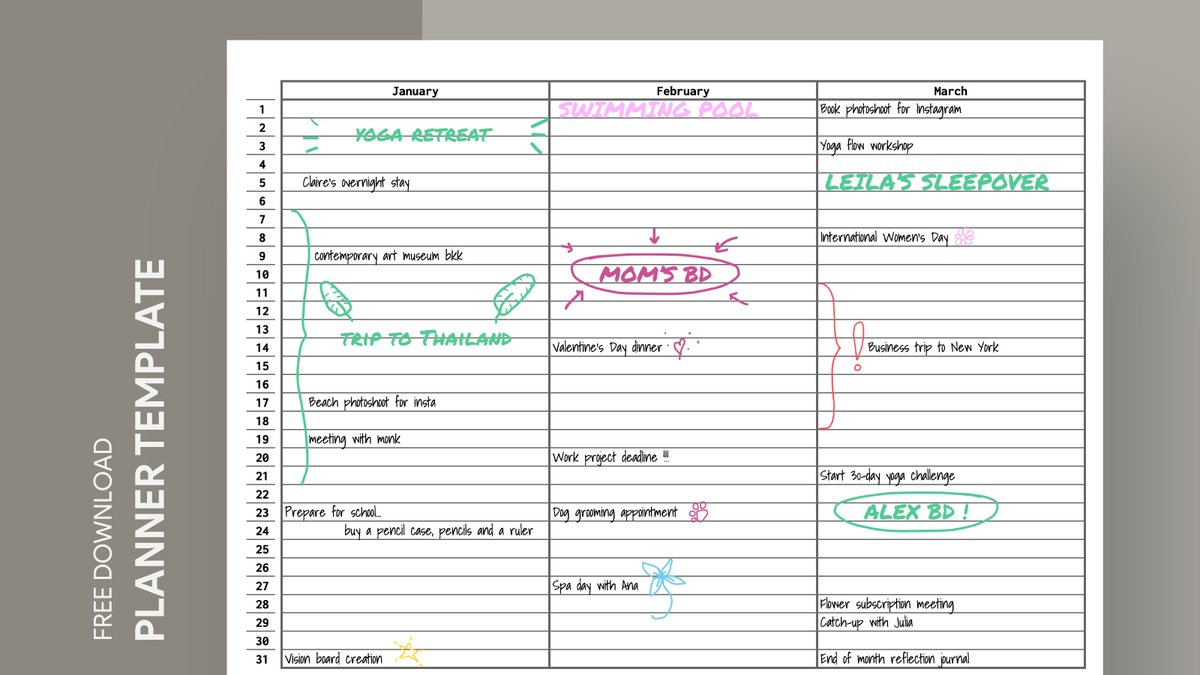 FREE DOWNLOAD
PLANNER TEMPLATE
January February March
1 SWIMMING POOL Book photoshoot for Instagram
2 YOGA RETREAT
3 Yoga flow workshop
4
5 Claire's overnight stay LEILA'S SLEEPOVER
6
7
8 International Women's Day
9 contemporary art museum bkk
10 MOM'S BD
11
12
13 TRIP TO THAILAND
14 Valentine's Day dinner ! Business trip to New York
15
16
17 Beach photoshoot for insta
18
19 meeting with monk
20 Work project deadline !!!
21 Start 30-day yoga challenge
22
23 Prepare for school... Dog grooming appointment ALEX BD !
24 buy a pencil case, pencils and a ruler
25
26
27 Spa day with Ana
28 Flower subscription meeting
29 Catch-up with Julia
30
31 Vision board creation End of month reflection journal